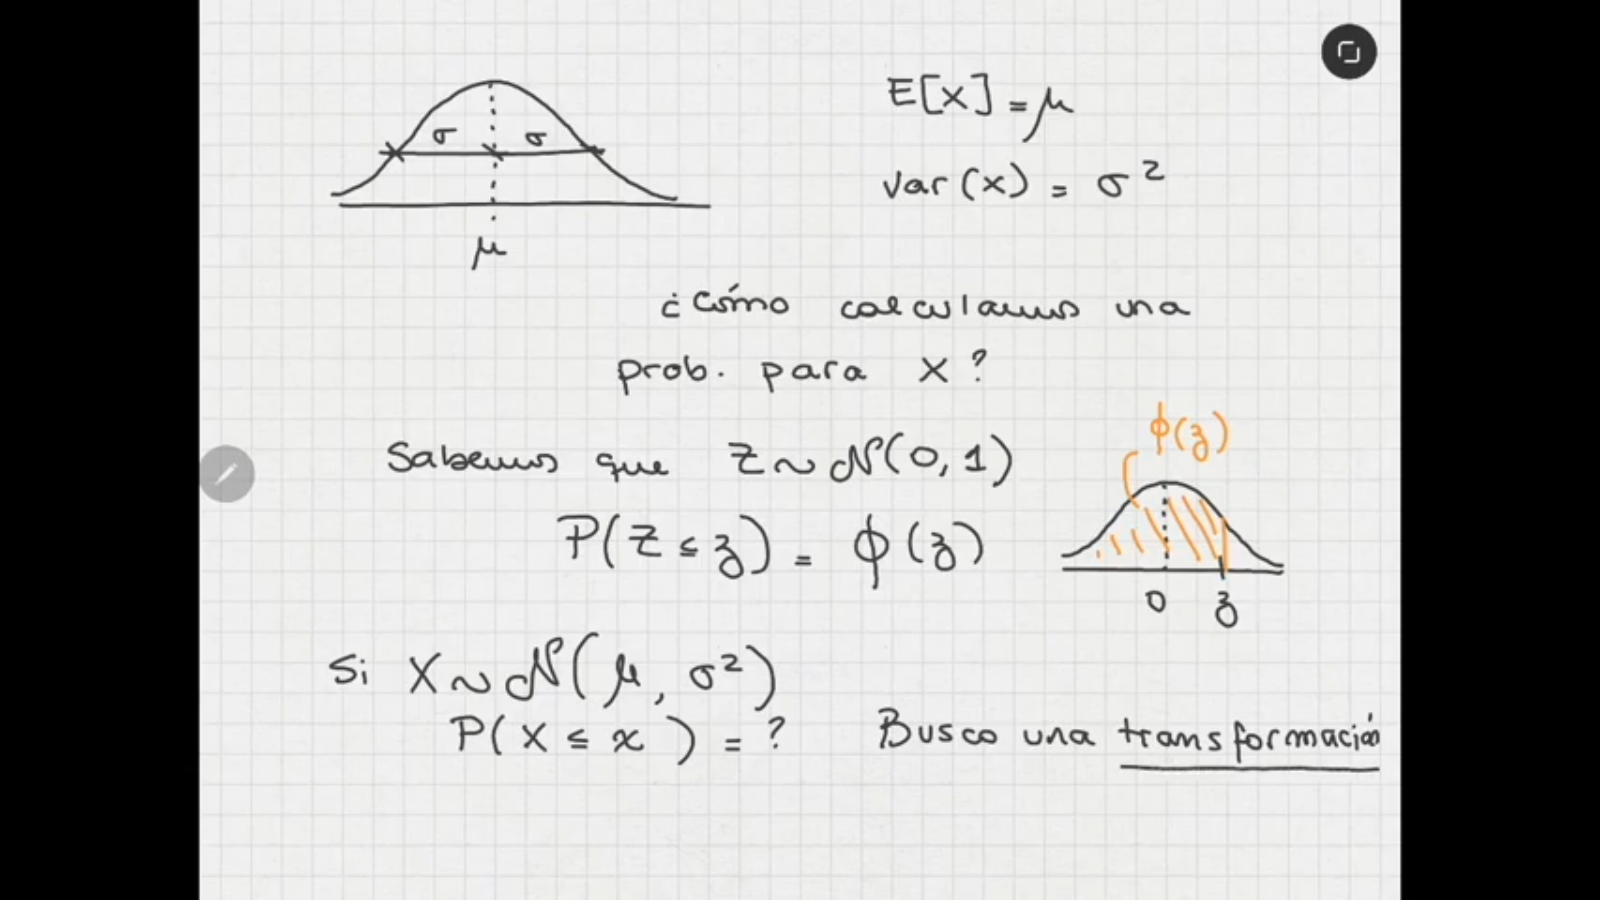 σ σ
μ
E[X] = μ
Var(X) = σ²
¿Cómo calculamos una
prob. para X?
Sabemos que Z ~ N(0,1)
P(Z ≤ z) = ϕ(z)
ϕ(z)
0 z
Si X ~ N(μ, σ²)
P(X ≤ x) = ?
Busco una transformación